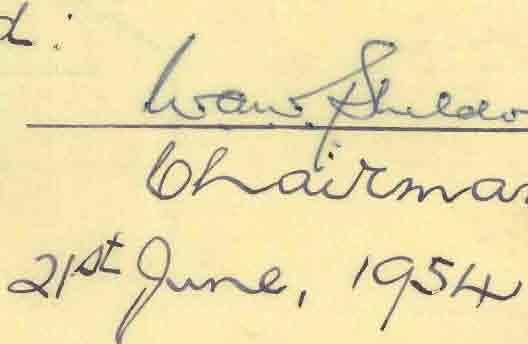 d:
Sheldo
Chairman
21st June, 1954